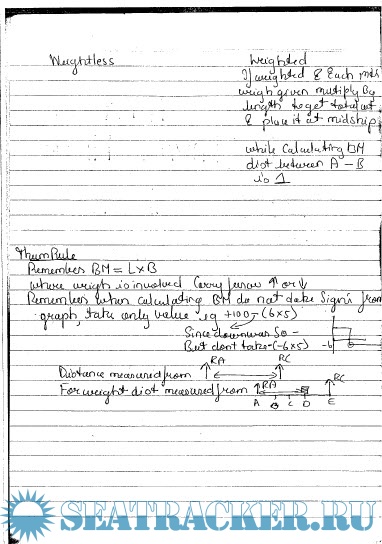 Weightless
Weighted
If weighted & Each mts
weigh given multiply By
length to get total wt
& place it at midship
while Calculating BM
dist between A - B
is 1
Thum Rule
Remember BM = L x B
where weigh is involved Carry forwar ↑ or ↓
Remember when calculating BM do not take Signs from
graph, take only value ig +100 - (6 x 5)
Since downwar So -
But dont take - (-6 x 5)
-6
RA RC
Distance measured from
For weight dist measured from
RA RC
A B C D E
SEATRACKER.RU